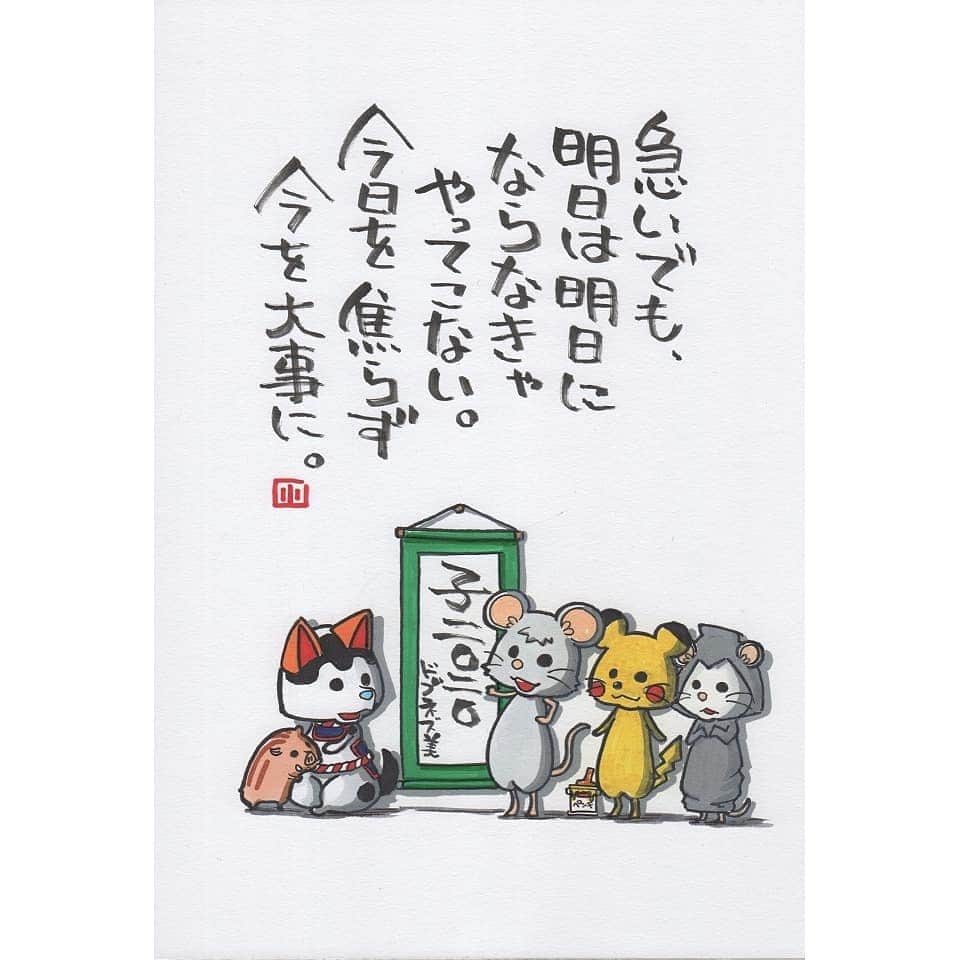 急いでも、
明日は明日に
ならなきゃ
やってこない。
今日を焦らず
今を大事に。
子二〇二〇
ドブネズ美
ペンキ